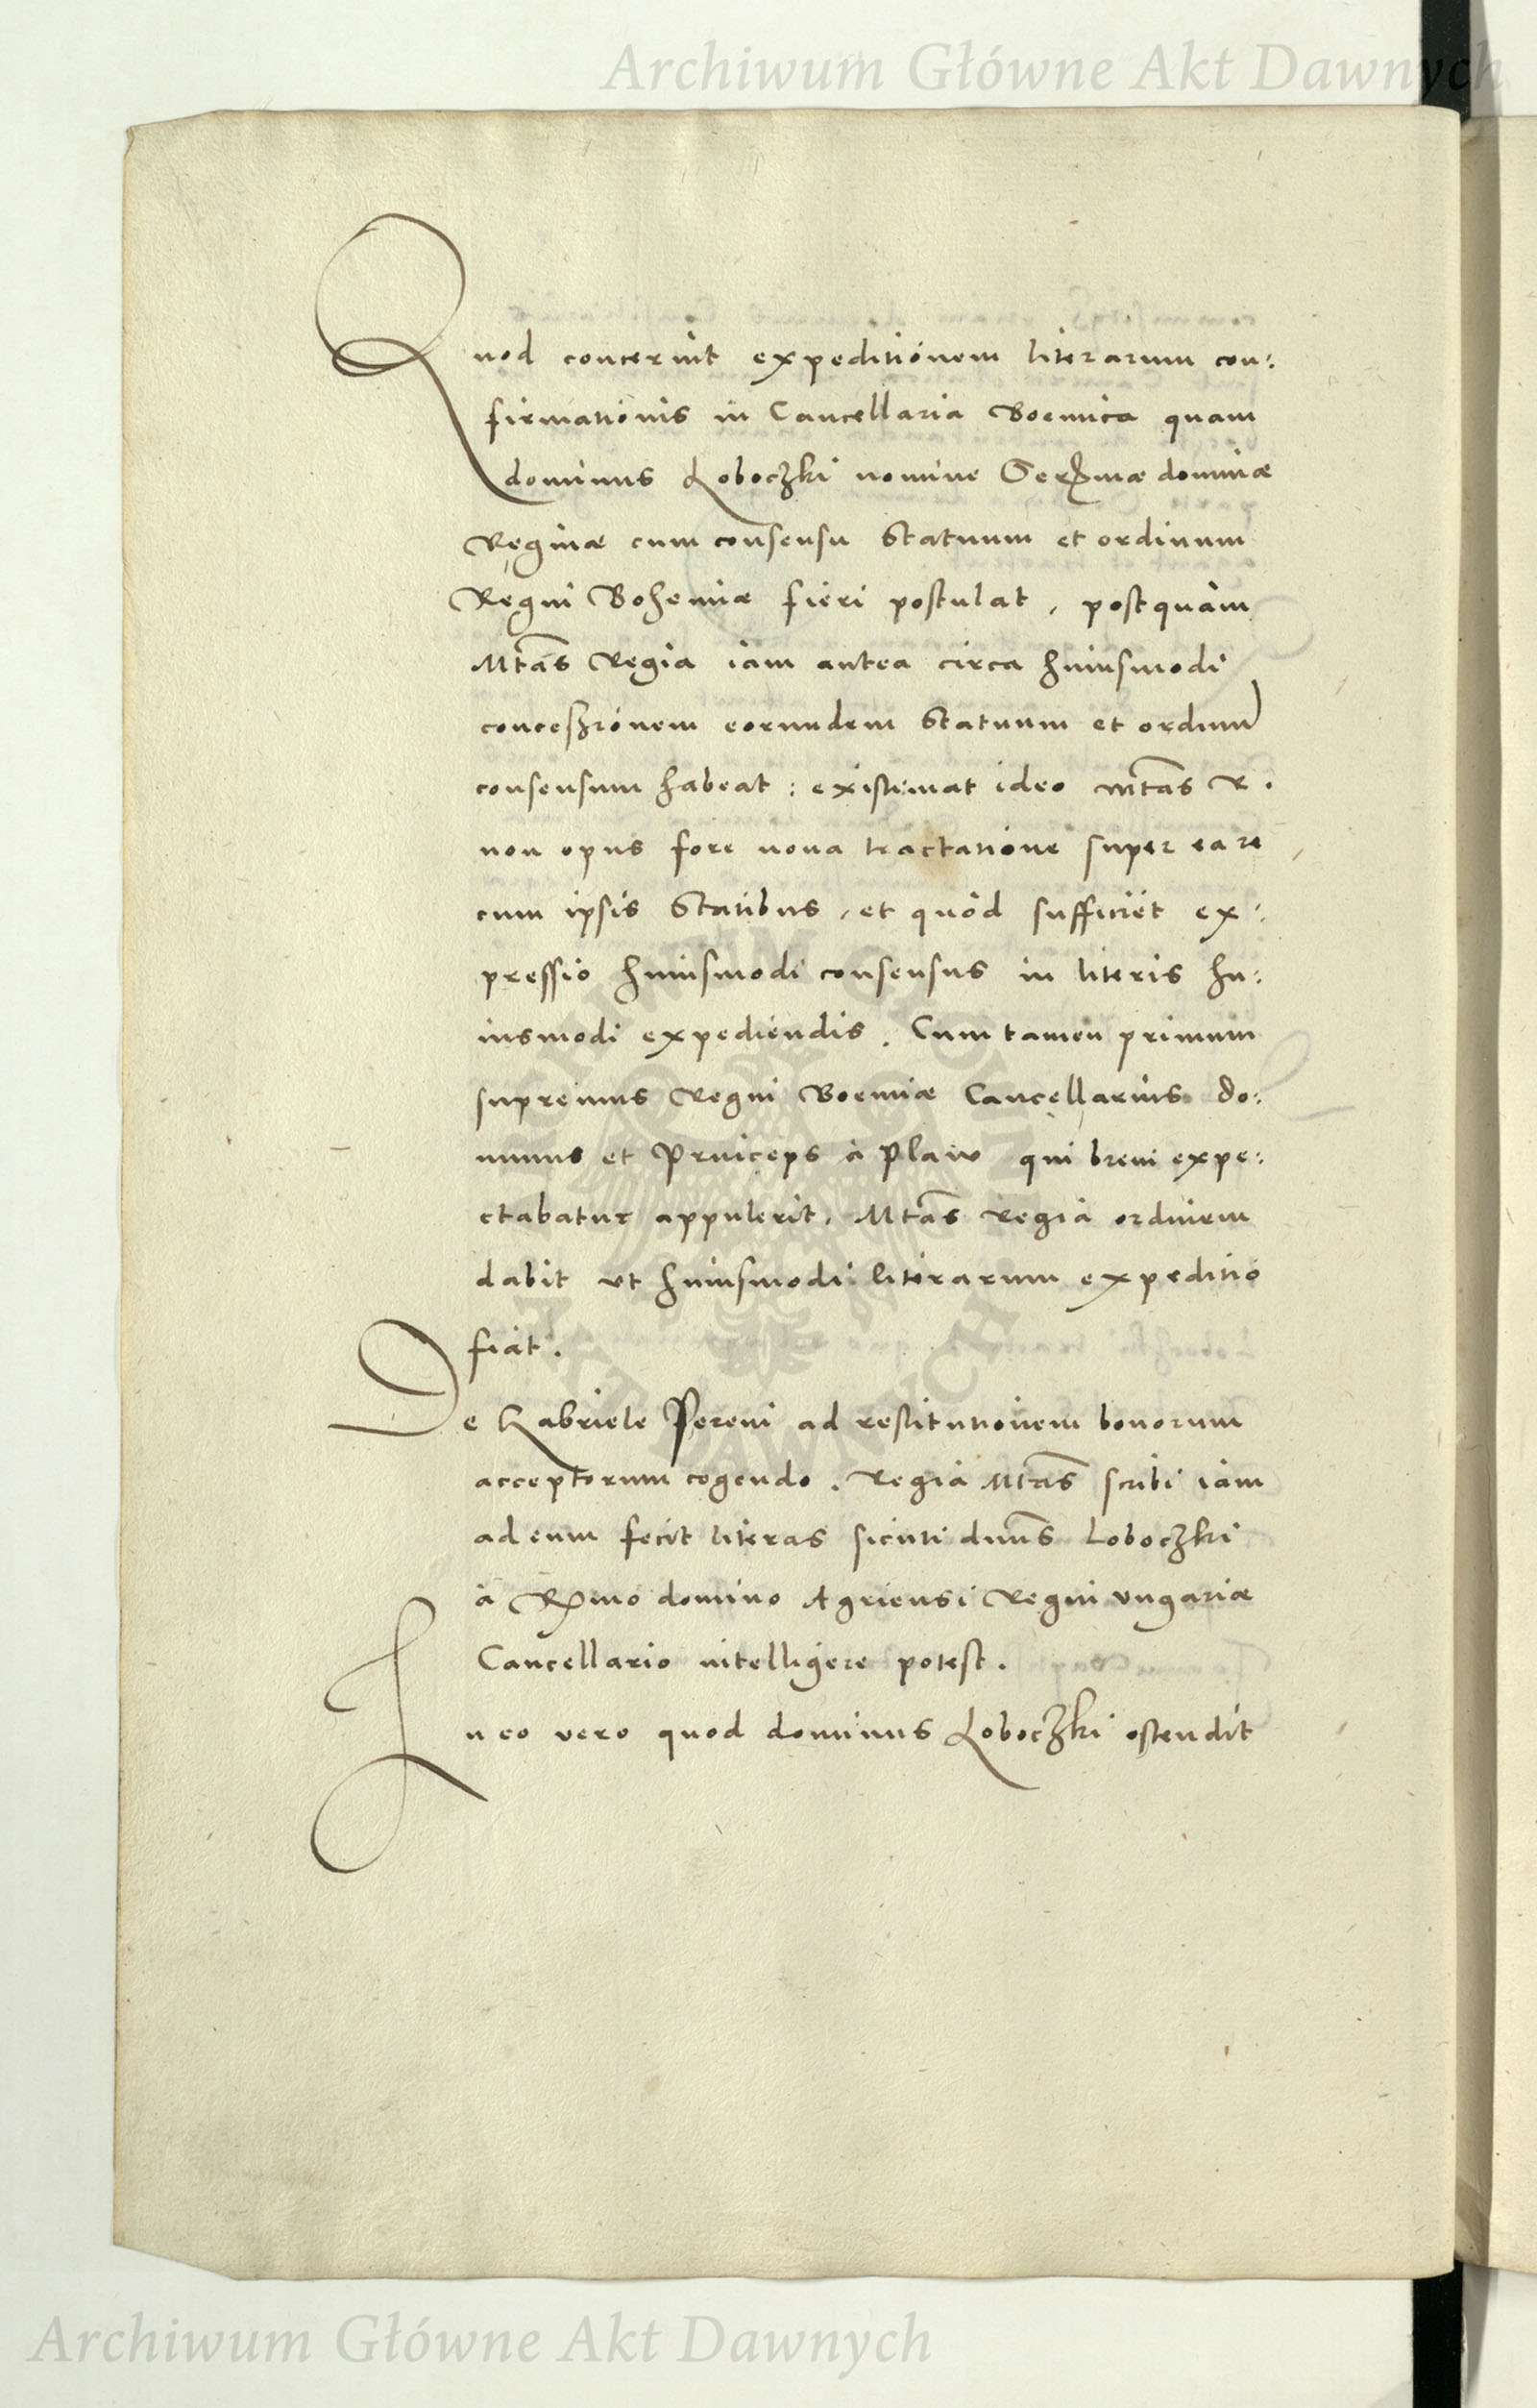 Archiwum Główne Akt Dawnych
Quod concernit expeditionem literarum con:
firmationis in Cancellaria Boemica quam
dominus Loboczki nomine Serᵐae dominæ
Reginæ cum consensu Statuum et ordinum
Regni Bohemiæ fieri postulat, postquam
Mtas Regia iam antea circa huiusmodi
concessionem eorundem Statuum et ordinum
consensum habeat: existimat ideo Mtas R.
non opus fore noua tractatione super ea re
cum ipsis Statibus, et quòd sufficiet ex:
pressio huiusmodi consensus in literis hu:
iusmodi expediendis. Cum tamen primum
supremus Regni Boemiæ Cancellarius do:
minus et Princeps à Plaw qui breui expe:
ctabatur appulerit, Mtas Regia ordinem
dabit vt huiusmodi literarum expeditio
fiat.
De Gabriele Pereni ad restitutionem bonorum
acceptorum cogendo. Regia Mtas scribi iam
ad eum fecit literas sicuti dnus Loboczki
à Rmo domino Agriensi Regni vngariæ
Cancellario intelligere potest.
In eo vero quod dominus Loboczki ostendit
Archiwum Główne Akt Dawnych